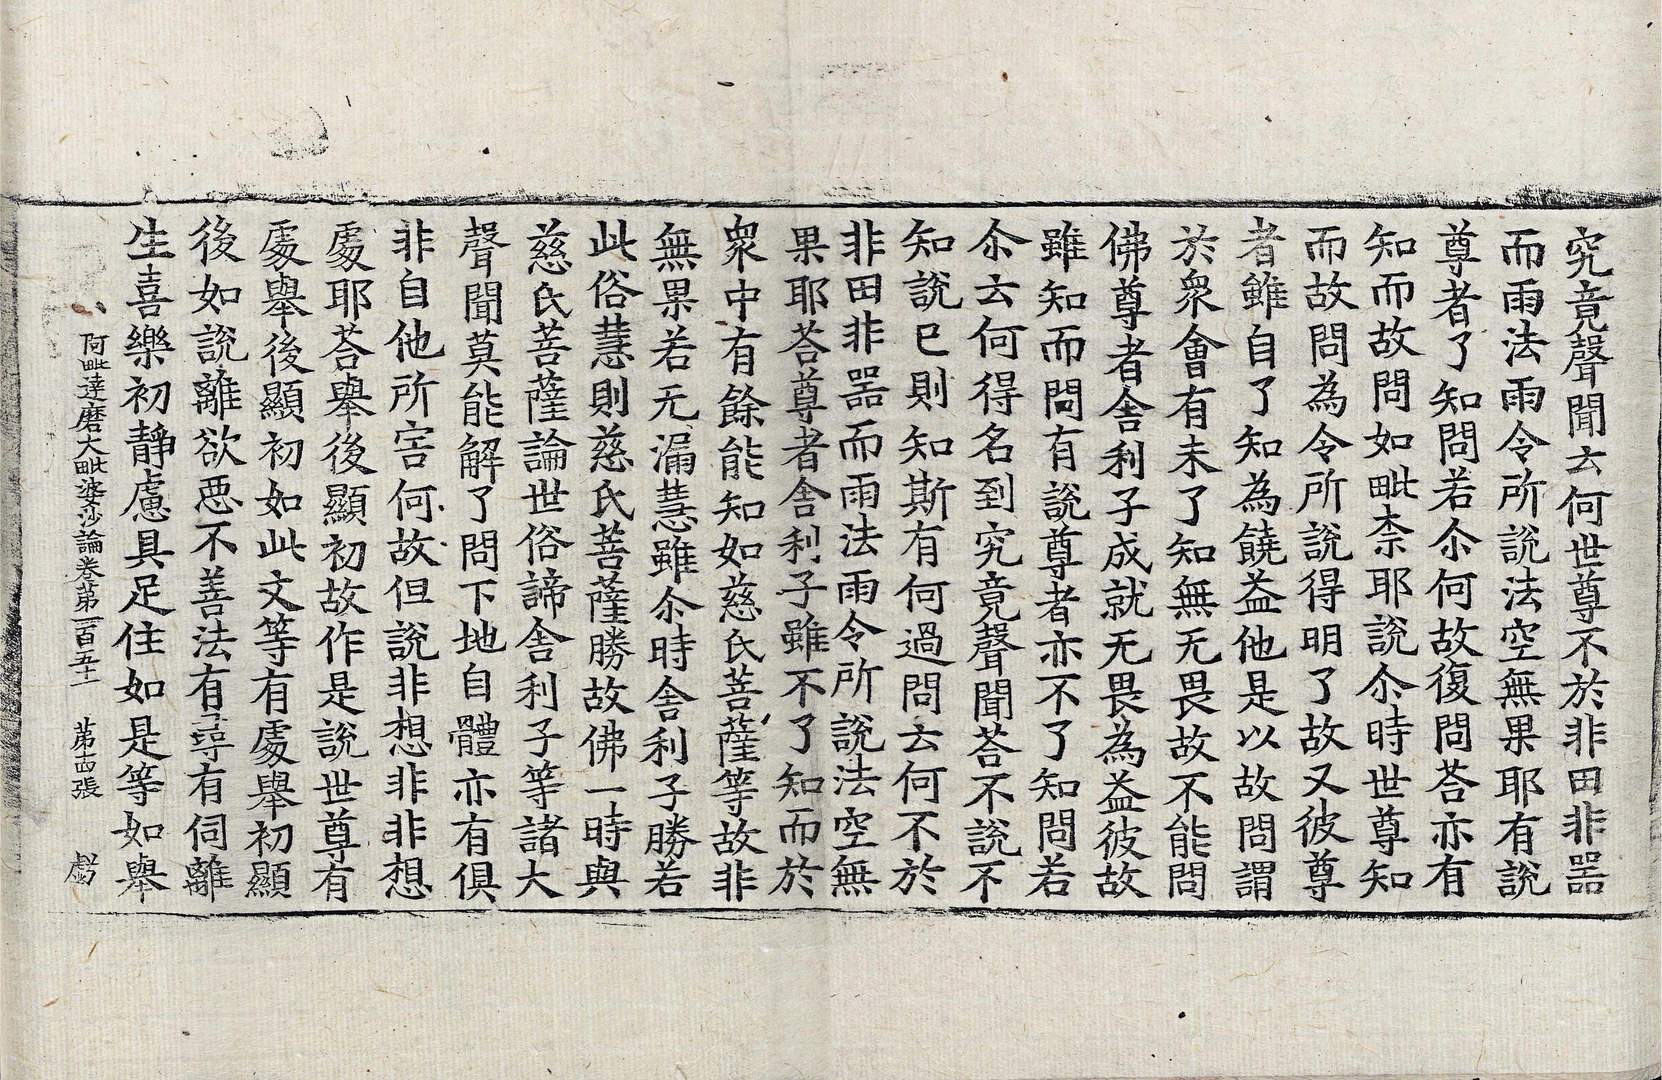 究竟聲聞云何世尊不於非田非器
而雨法雨令所說法空無果耶有說
尊者了知問若尒何故復問荅亦有
知而故問如毗柰耶說尒時世尊知
而故問為令所說得明了故又彼尊
者雖自了知為饒益他是以故問謂
於衆會有未了知無无畏故不能問
佛尊者舍利子成就无畏為益彼故
雖知而問有說尊者亦不了知問若
尒云何得名到究竟聲聞荅不說不
知說已則知斯有何過問云何不於
非田非器而雨法雨令所說法空無
果耶荅尊者舍利子雖不了知而於
衆中有餘能知如慈氏菩薩等故非
無果若无漏慧雖尒時舍利子勝若
此俗慧則慈氏菩薩勝故佛一時與
慈氏菩薩論世俗諦舍利子等諸大
聲聞莫能解了問下地自體亦有俱
非自他所害何故但說非想非非想
處耶荅舉後顯初故作是說世尊有
處舉後顯初如此文等有處舉初顯
後如說離欲惡不善法有尋有伺離
生喜樂初靜慮具足住如是等如舉
阿毗達磨大毗婆沙論卷第一百五十一 第十四張